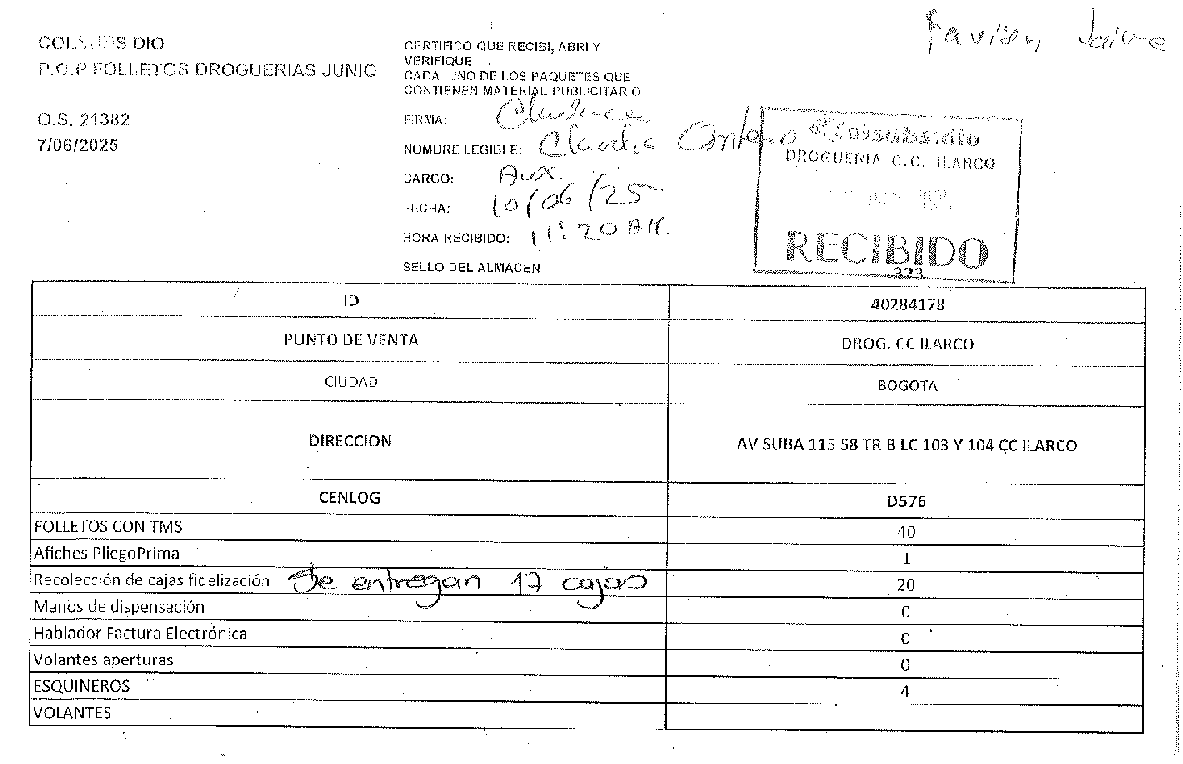 COLSUBSIDIO
P.O.P FOLLETOS DROGUERIAS JUNIO
O.S. 21382
7/06/2025
CERTIFICO QUE RECIBI, ABRI Y
VERIFIQUE
CADA UNO DE LOS PAQUETES QUE
CONTIENEN MATERIAL PUBLICITARIO
FIRMA:
NOMBRE LEGIBLE: Claudia
CARGO: Aux.
FECHA: 10/06/25
HORA RECIBIDO: 11:20 AM.
SELLO DEL ALMACEN
Colsubsidio
DROGUERIA C.C. ILARCO
RECIBIDO
333
ID 40284178
PUNTO DE VENTA DROG. CC ILARCO
CIUDAD BOGOTA
DIRECCION AV SUBA 115 58 TR B LC 103 Y 104 CC ILARCO
CENLOG D576
FOLLETOS CON TMS 40
Afiches PliegoPrima 1
Recolección de cajas fidelización Se entregan 17 cajas 20
Manos de dispensación 0
Hablador Factura Electrónica 0
Volantes aperturas 0
ESQUINEROS 4
VOLANTES